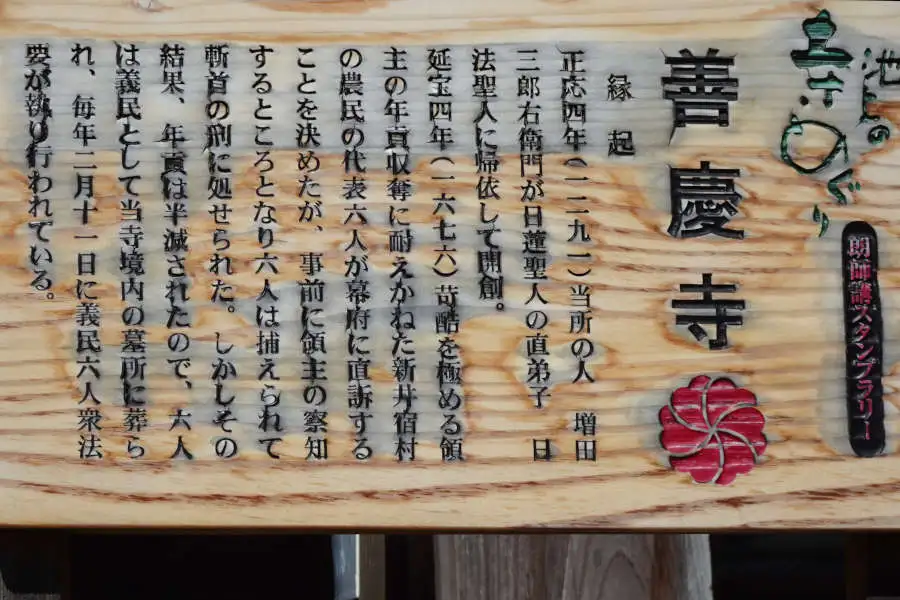 池上の
寺めぐり
朗師講スタンプラリー
善慶寺
縁起
正応四年(一二九一)当所の人 増田
三郎右衛門が日蓮聖人の直弟子 日
法聖人に帰依して開創。
延宝四年(一六七六)苛酷を極める領
主の年貢収奪に耐えかねた新井宿村
の農民の代表六人が幕府に直訴する
ことを決めたが、事前に領主の察知
するところとなり六人は捕えられて
斬首の刑に処せられた。しかしその
結果、年貢は半減されたので、六人
は義民として当寺境内の墓所に葬ら
れ、毎年二月十一日に義民六人衆法
要が執り行われている。